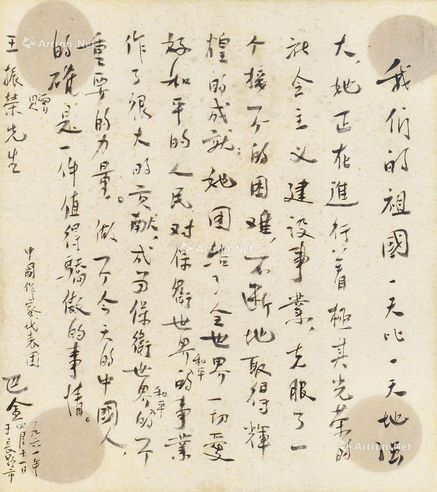 我们的祖國一天比一天地強
大，她正在進行着極其光荣的
社会主义建設事業，克服了一
个接一个的困难，不断地取得輝
煌的成就；她团结了全世界一切愛
好和平的人民对保衛世界和平的事業
作了很大的贡献，成为保衛世界和平的一个
重要的力量。做一个今天的中國人，
的確是一件值得驕傲的事情。
赠
王振荣先生
中國作家代表团
巴金
一九六一年
四月
Artron.Net